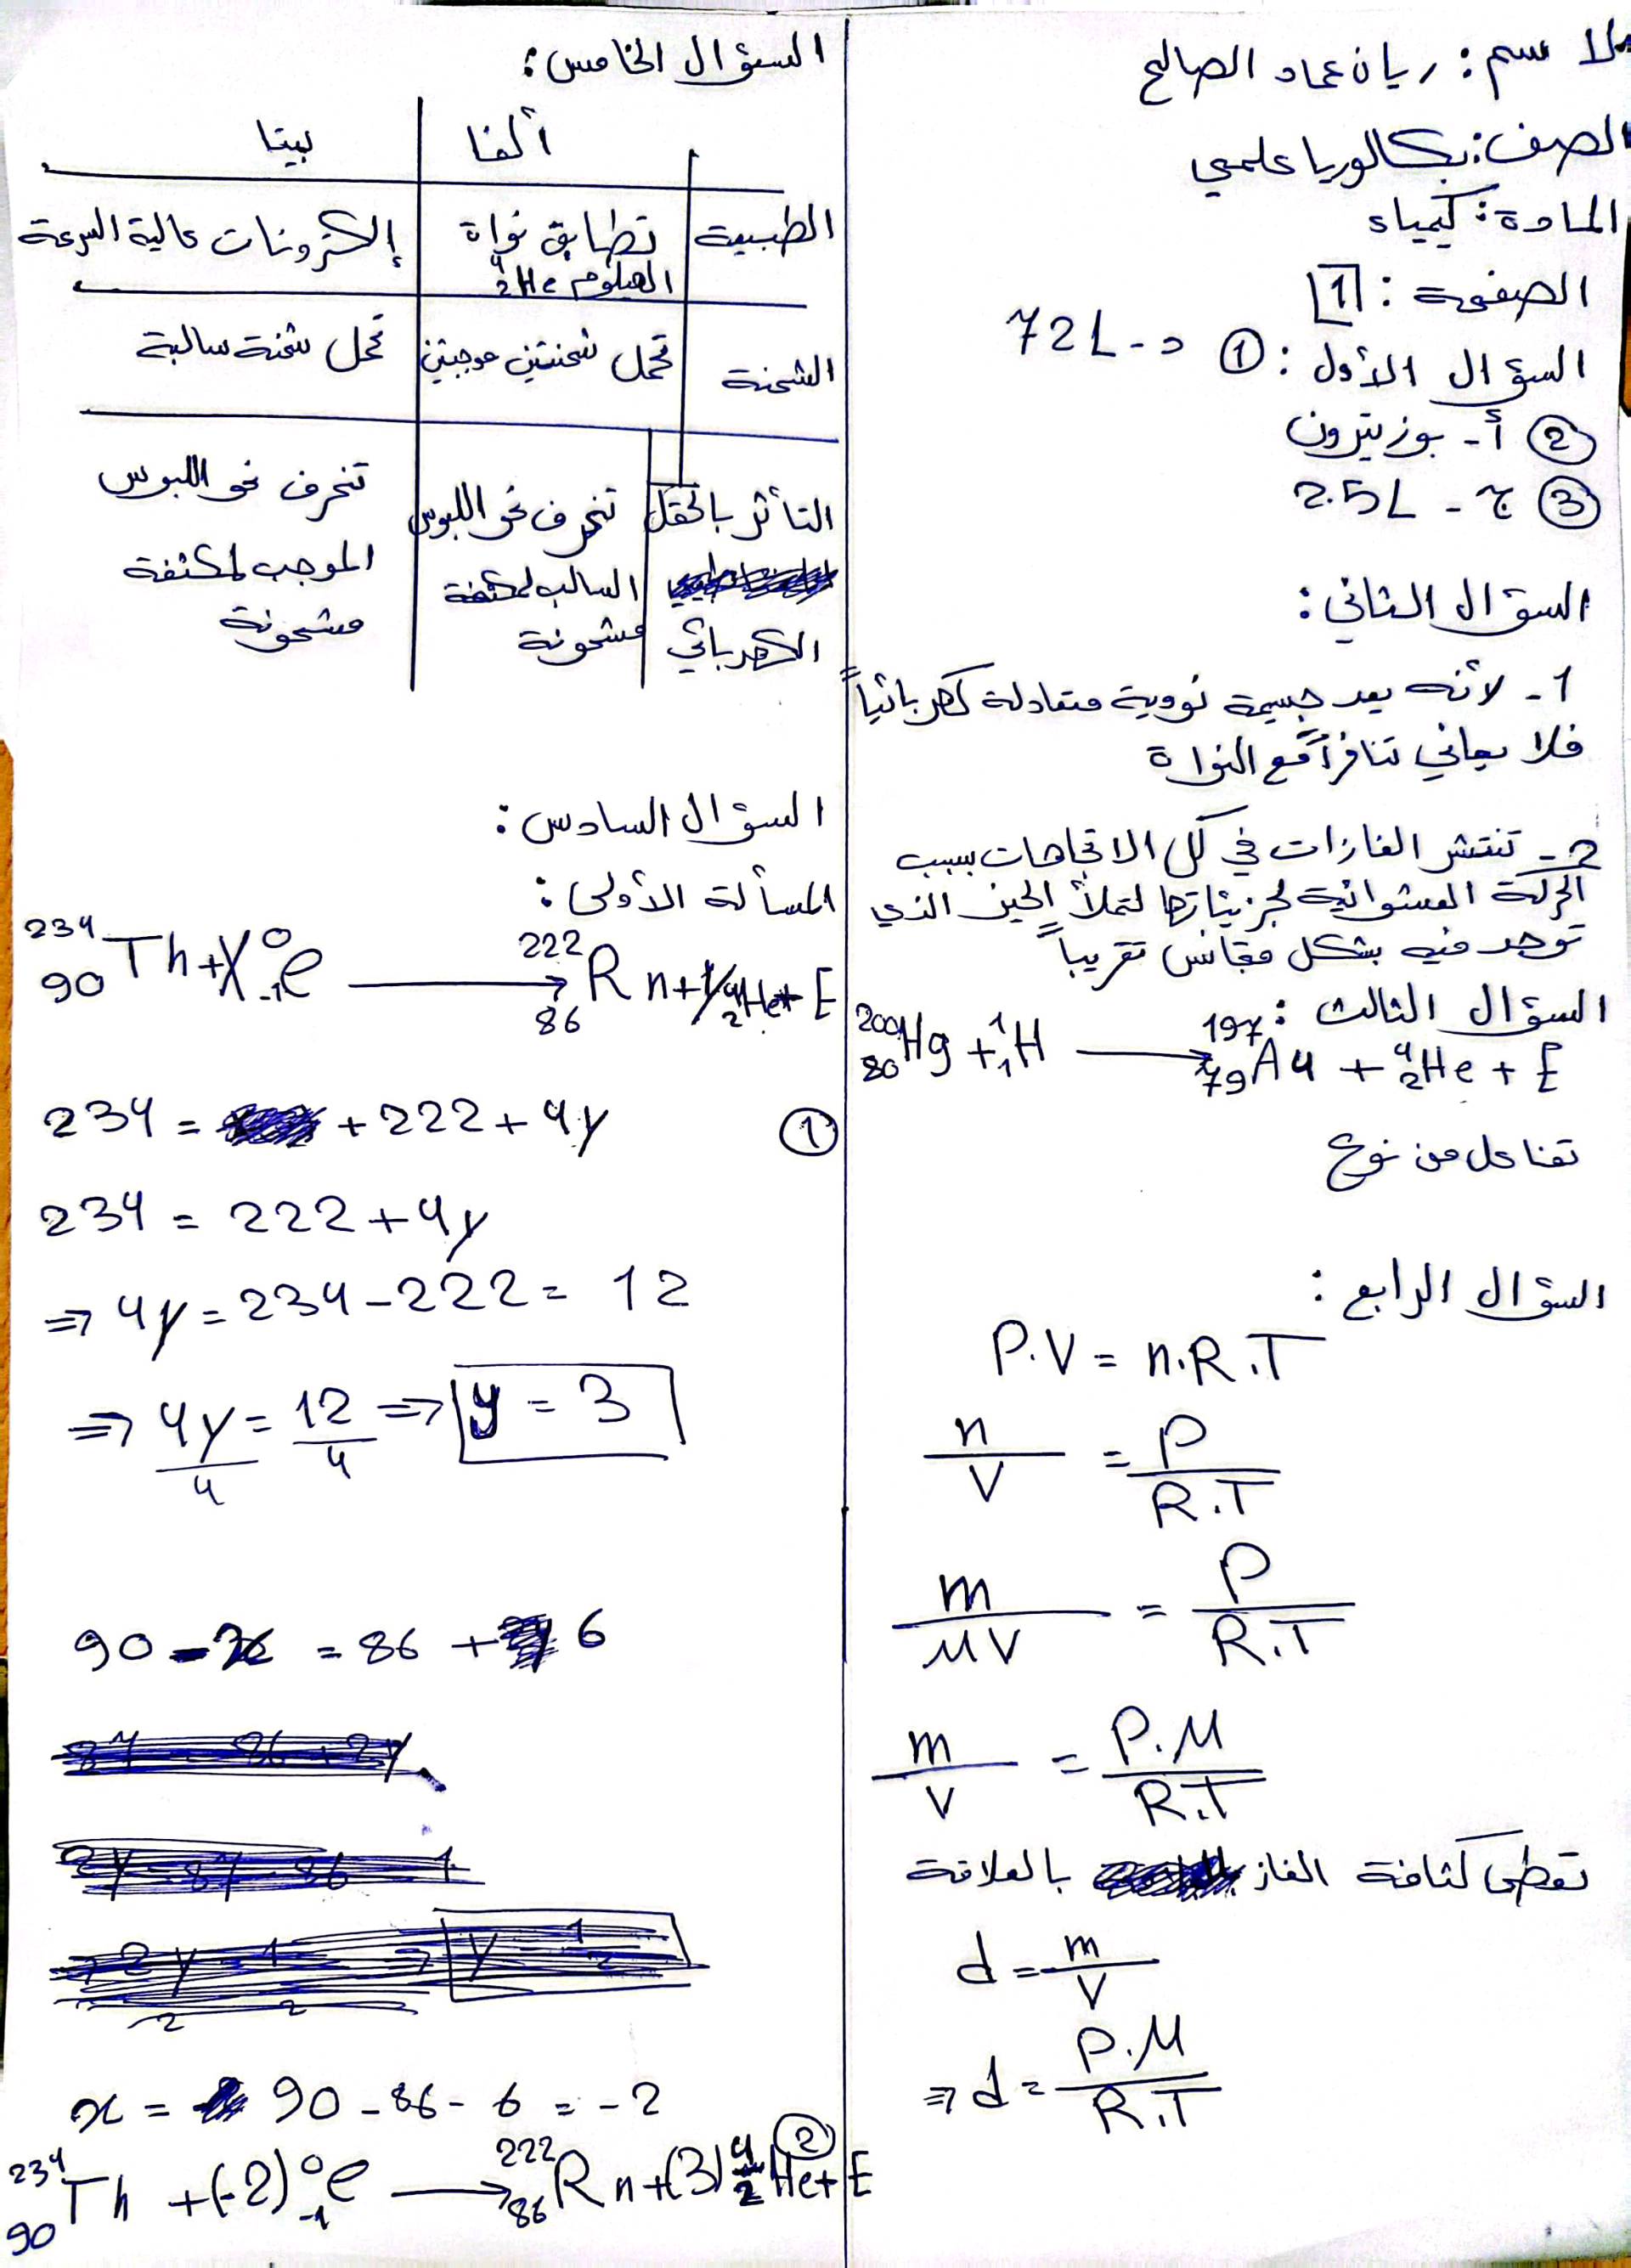 الاسم : ريان عماد الصالح
الصف : بكالوريا علمي
المادة : كيمياء
الصفحة : 1
السؤال الأول : ① د - 72L
② أ - بوزيترون
③ ج - 2.5L
السؤال الثاني :
1 - لأنه يعد جسيمة نووية متعادلة كهربائياً
فلا يعاني تنافراً مع النواة
2 - تنتشر الغازات في كل الاتجاهات بسبب
الحركة العشوائية لجزيئاتها لتملأ الحيز الذي
توجد فيه بشكل متجانس تقريباً
السؤال الثالث :
²⁰⁰₈₀Hg + ¹₁H → ¹⁹⁷₇₉Au + ⁴₂He + E
تفاعل من نوع
السؤال الرابع :
P.V = n.R.T
n/V = P/R.T
m/MV = P/R.T
m/V = P.M/R.T
تعطى كثافة الغاز بالعلاقة
d = m/V
⇒ d = P.M/R.T
السؤال الخامس :
ألفا بيتا
الطبيعة تطابق نواة الهيلوم ⁴₂He إلكترونات عالية السرعة
الشحنة تحمل شحنتين موجبتين تحمل شحنة سالبة
التأثر بالحقل الكهربائي تنحرف نحو اللبوس السالب لمكثفة مشحونة تنحرف نحو اللبوس الموجب لمكثفة مشحونة
السؤال السادس :
المسألة الأولى :
²³⁴₉₀Th + X ⁰₋₁e → ²²²₈₆Rn + y ⁴₂He + E
234 = + 222 + 4y ①
234 = 222 + 4y
⇒ 4y = 234 - 222 = 12
⇒ 4y/4 = 12/4 ⇒ y = 3
90 - x = 86 + 6
x = 90 - 86 - 6 = -2
②
²³⁴₉₀Th + (-2) ⁰₋₁e → ²²²₈₆Rn + (3) ⁴₂He + E